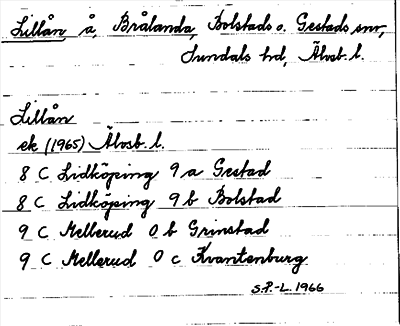 Lillån, å, Brålanda, Bolstads o. Gestads snr,
Sundals hd, Älvsb. l.
Lillån
ek (1965) Älvsb. l.
8 C Lidköping 9 a Gestad
8 C Lidköping 9 b Bolstad
9 C Mellerud 0 b Grinstad
9 C Mellerud 0 c Kvantenburg
S.P.-L. 1966